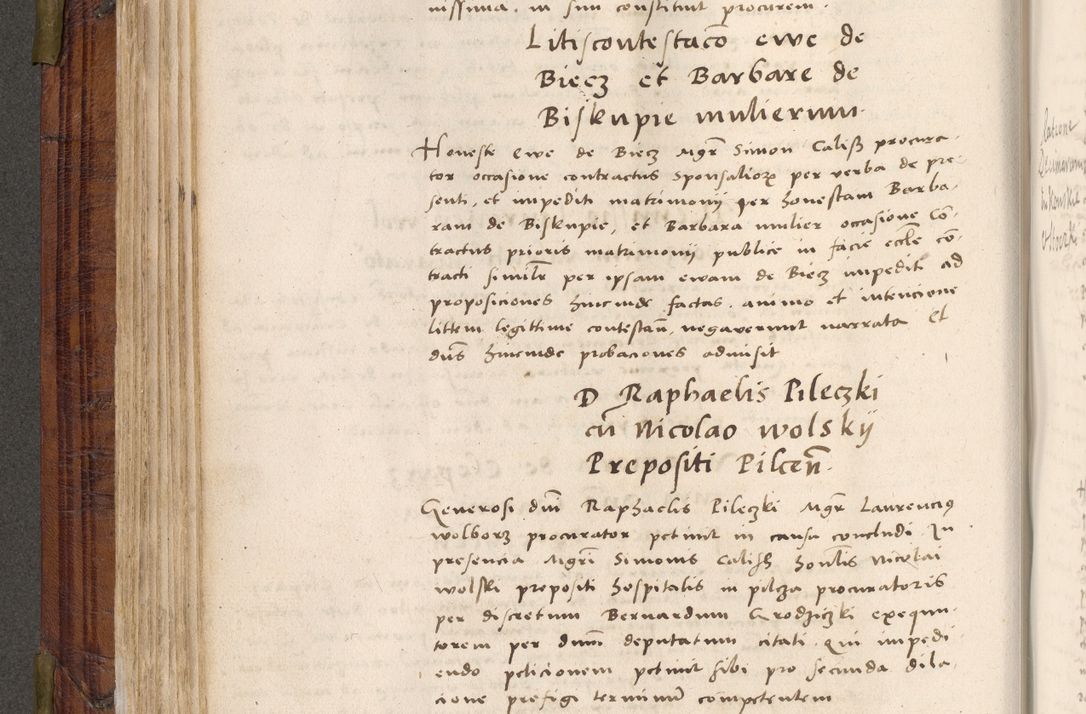 nissima. in sun constituit procurem.
Litiscontestacō ewe de
Biecz et Barbare de
Biskupie mulierum.
Honeste Ewe de Biecz Mgr Simon Calisz procura-
tor occasione contractus sponsalioꝝ per verba de pre-
senti, et impediti matrimonij per honestam Barba-
ram de Biskupie, et Barbara mulier occasione Con-
tractus prioris matrimonij publice in facie eccle con-
tracti similr per ipsam ewam de Biecz impediti ad
proposiciones hincinde factas. animo et intencione
littem legittime contestan. negaverunt narrata Et
dns hincinde probaciones admisit
D Raphaelis Pileczki
cū Nicolao Wolskij
Prepositi Pilcen.
Generosi dni Raphaelis Pileczki Mgr Laurencius
wolborz procurator petiuit in causa concludi In
presencia Mgri Simonis Calissh honlis Nicolai
wolski prepositi hospitalis in pilcza procuratoris
per discretum Bernardum Grodziczki exequu-
torem per dnm deputatum citati. Qui impedi
endo peticionem petiuit sibi pro secunda dila-
cione prefigi terminū competentem
Ratione